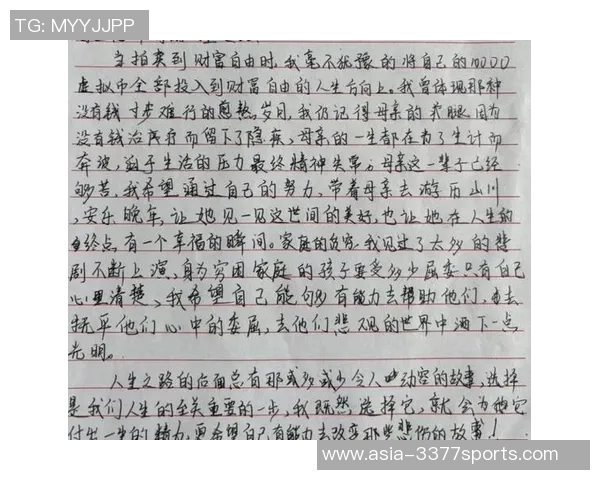 TG: MYYJJPP
当拍卖到财富自由时,我毫不犹豫的将自己的10000
虚拟币全部投入到财富自由的人生方向上。我曾体现那种
没有钱寸步难行的煎熬岁月,我仍记得母亲的 腿因为
没有钱治疗而留下了隐疾,母亲的一生都在为了生计而
奔波,迫于生活的压力最终精神失常。母亲这一辈子已经
够苦,我希望通过自己的努力,带着母亲去游历山川
,安乐晚年,让她见一见这世间的美好,也让她在人生的
终点,有一个幸福的瞬间。家庭的贫穷,我见过了太多的悲
剧不断上演,身为穷困家庭的孩子要受多少屈委只有自己
心里清楚,我希望自己能够有能力去帮助他们,去
抚平他们心中的委屈,去他们悲观的世界中洒下一点
光明。
人生之路的后面总有那或多或少令人动容的故事,选择
是我们人生的至关重要的一步,我既然选择它,就会为他
付出一生的精力,更希望自己有能力去改变那些悲伤的故事!
www.asia-3377sports.com